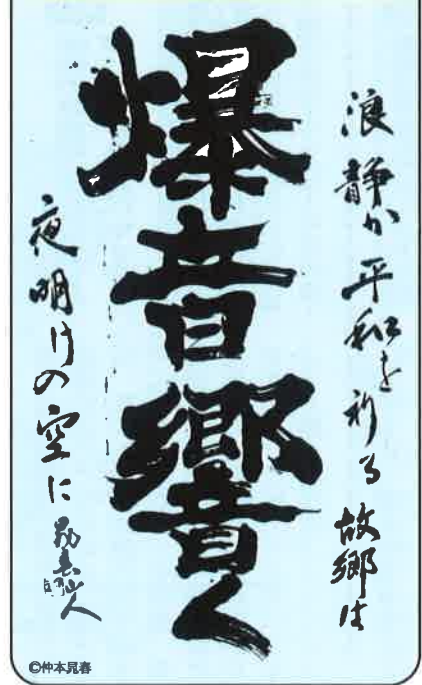 浪静か平和を祈る故郷は
爆音響く
夜明けの空に
©仲本晃春